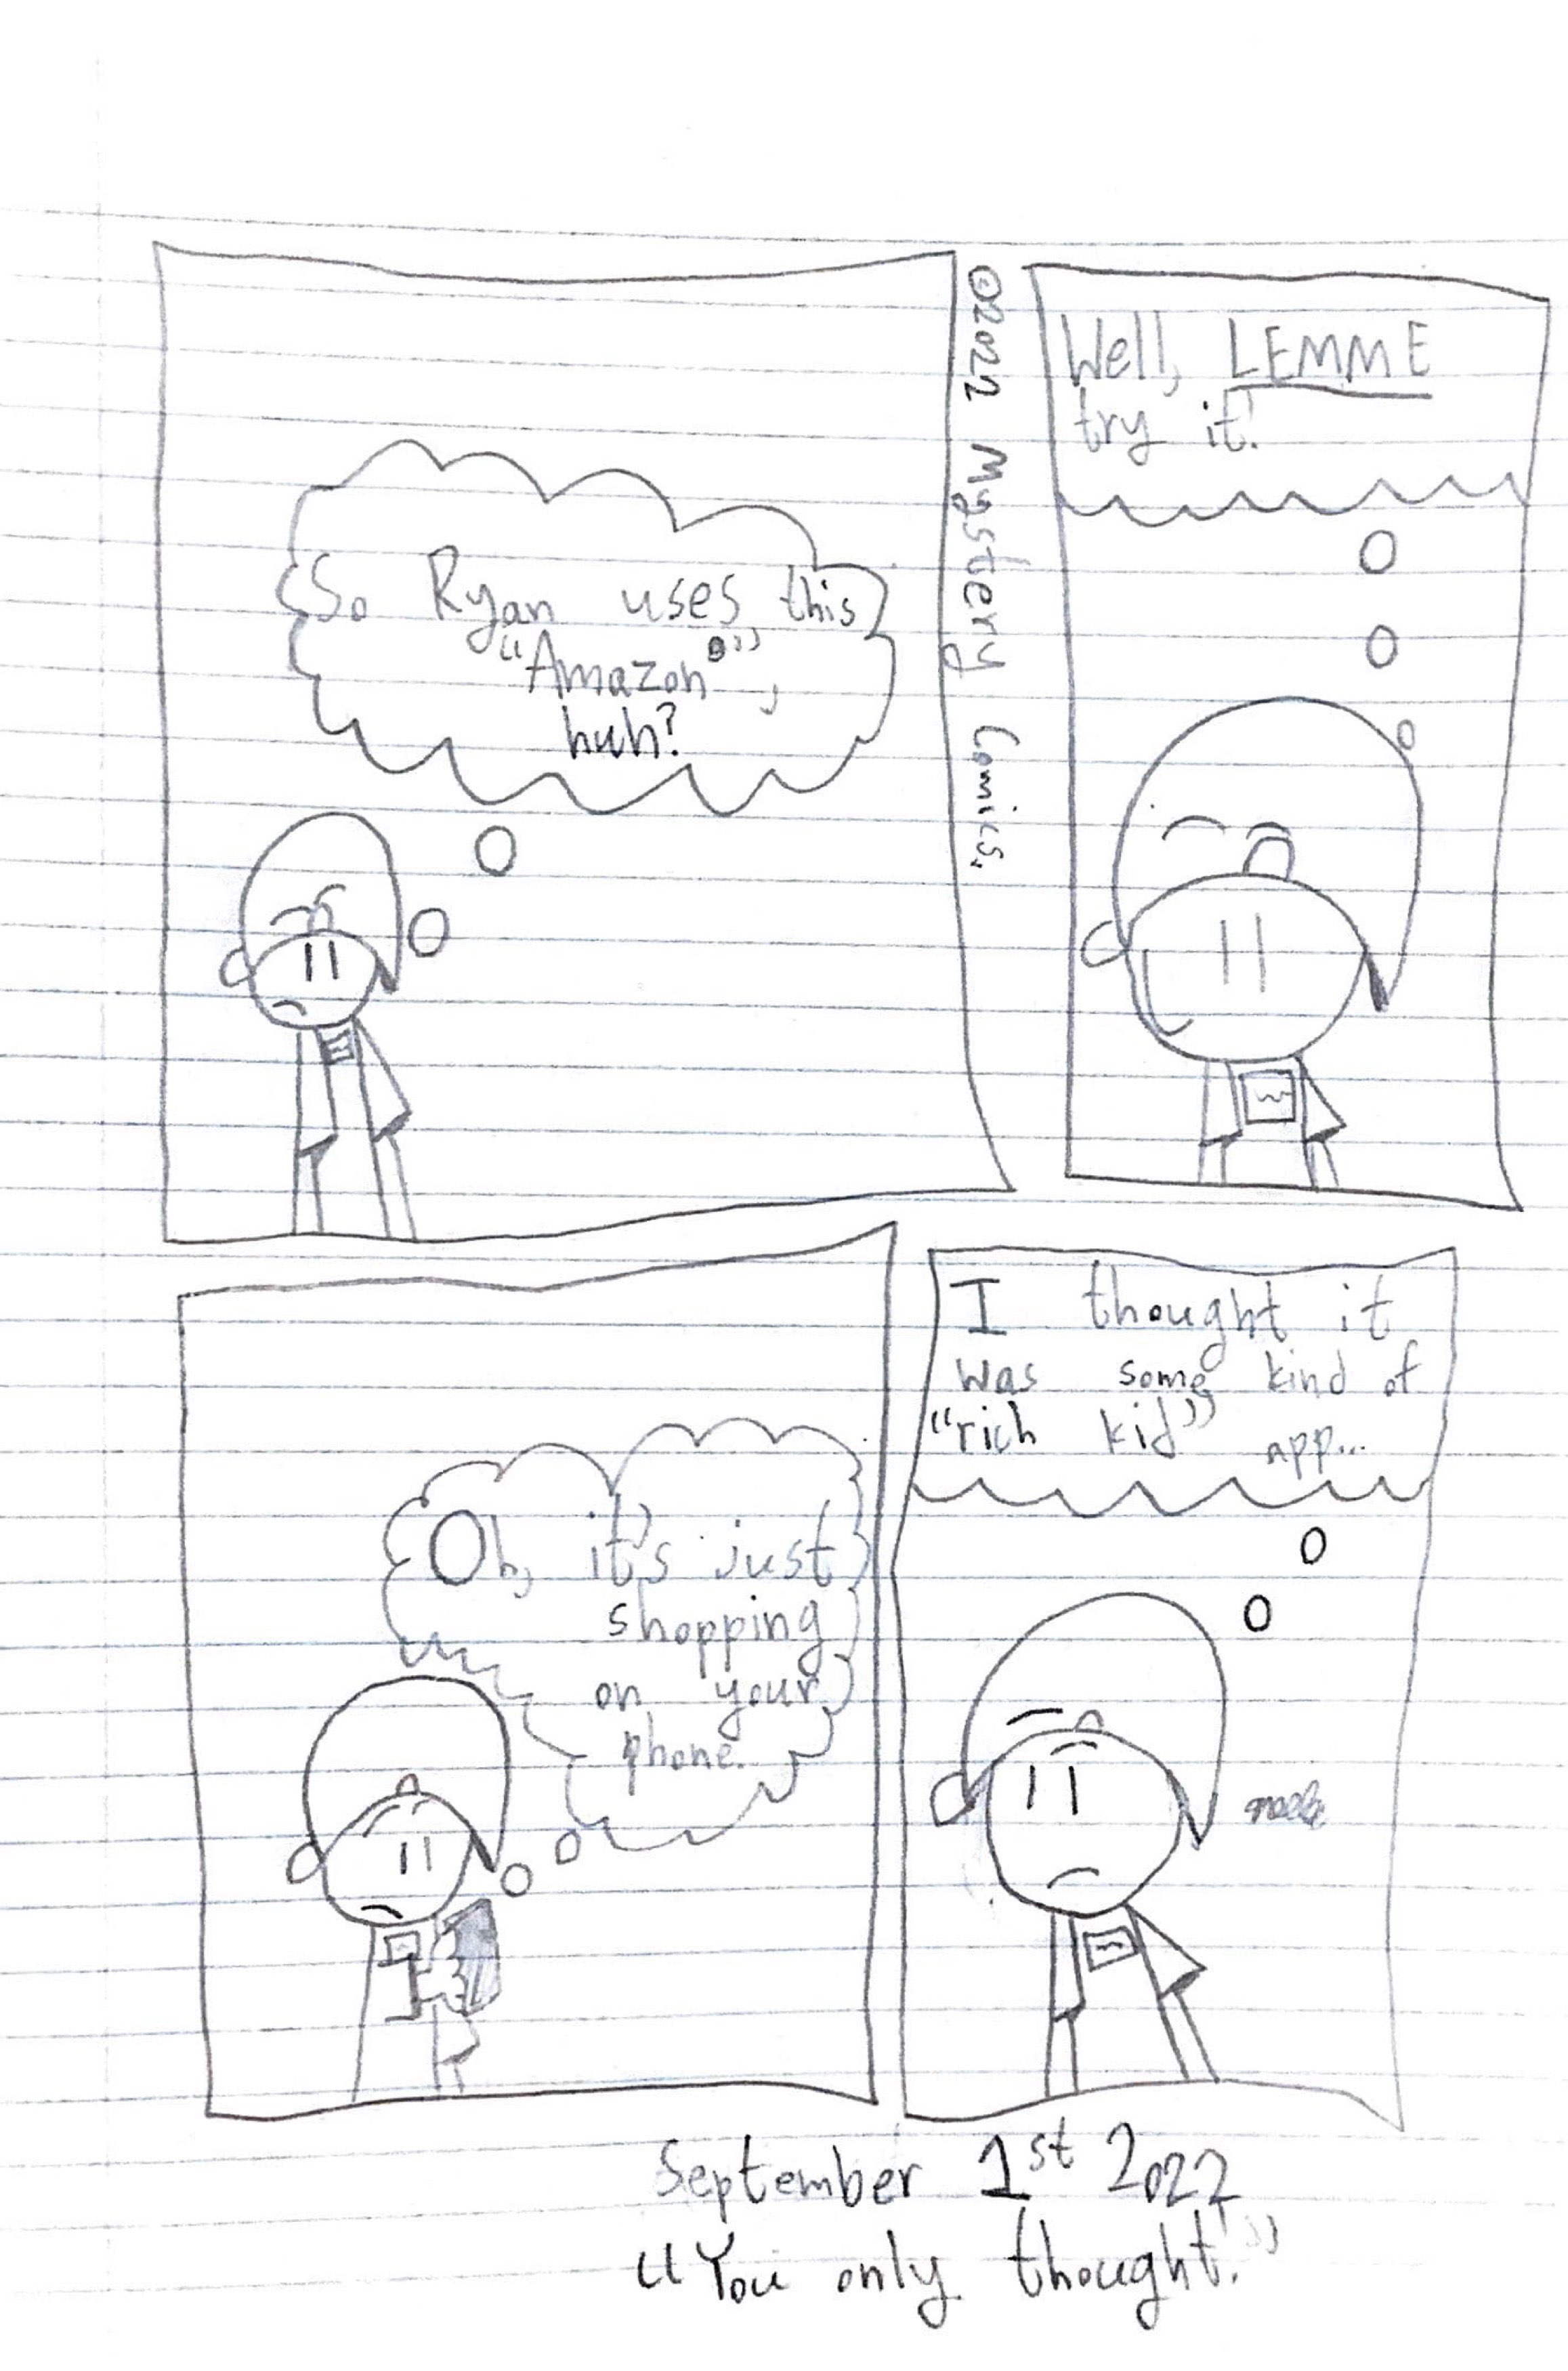 So Ryan uses this
"Amazon®",
huh?
©2022 Mystery Comics.
Well, LEMME
try it!
Oh, it's just
shopping
on your
phone.
I thought it
was some kind of
"rich kid" app...
September 1st 2022
"You only thought!"